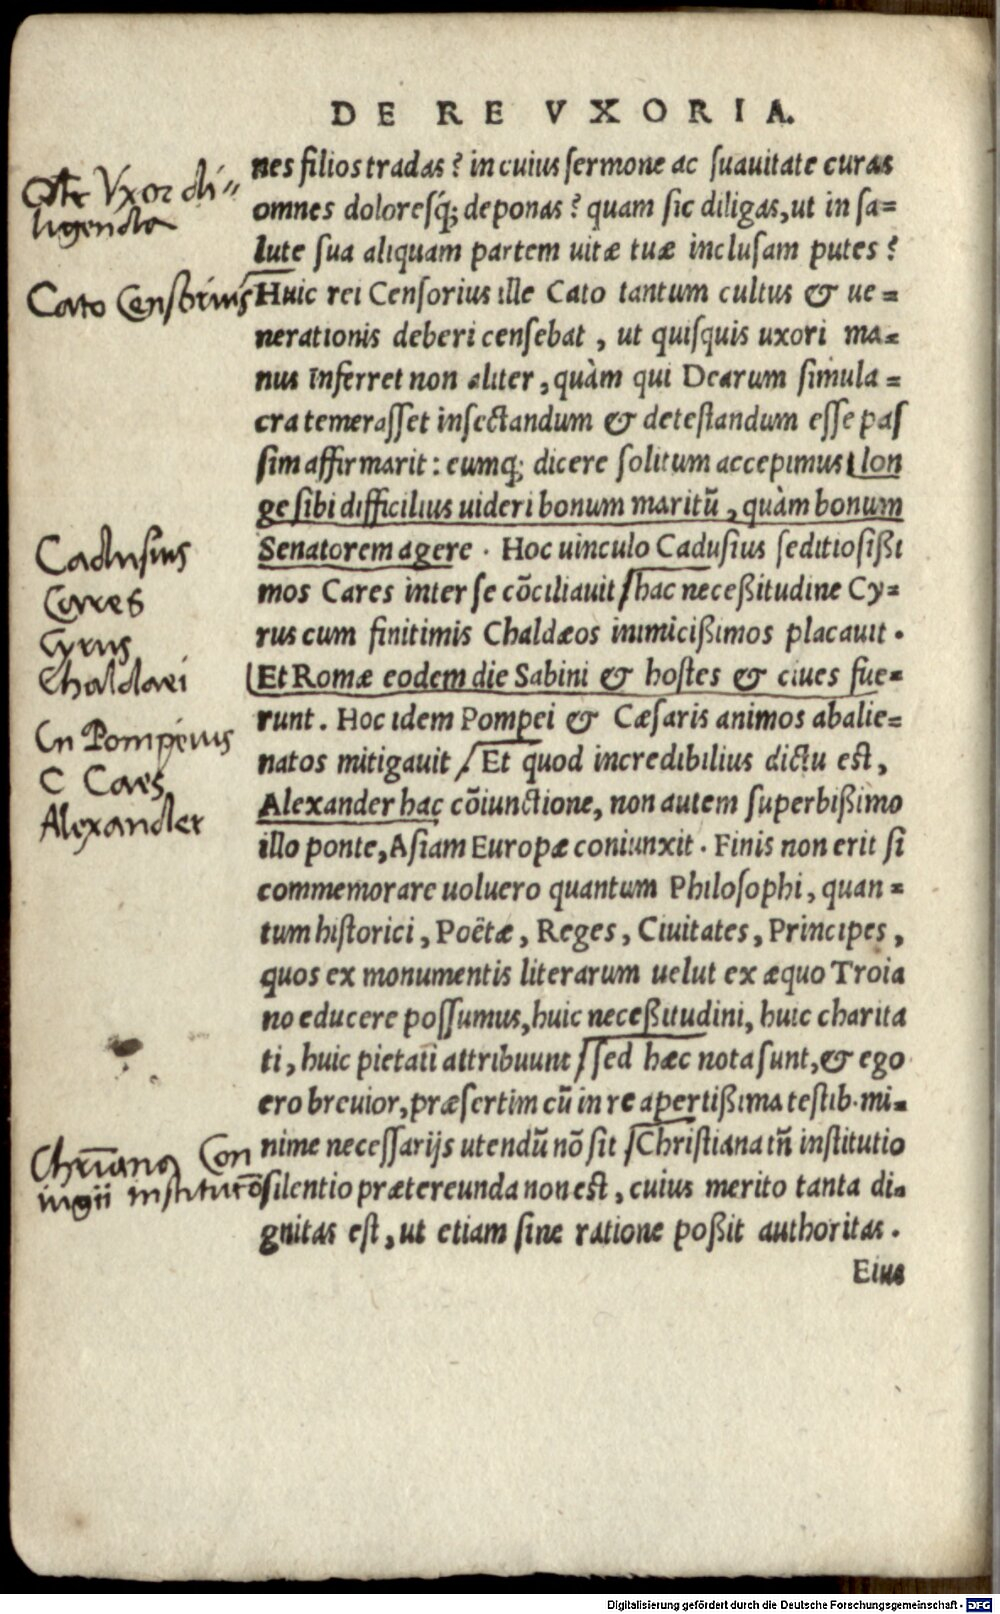 DE RE VXORIA.
nes filios tradas? in cuius sermone ac suauitate curas
omnes doloresq́; deponas? quam sic diligas, ut in sa=
lute sua aliquam partem uitæ tuæ inclusam putes?
Huic rei Censorius ille Cato tantum cultus & ue=
nerationis deberi censebat, ut quisquis uxori ma=
nus inferret non aliter, quàm qui Dearum simula=
cra temerasset insectandum & detestandum esse pas
sim affirmarit: eumq; dicere solitum accepimus lon
ge sibi difficilius uideri bonum maritū, quàm bonum
Senatorem agere. Hoc uinculo Cadusius seditiosißi
mos Cares inter se cōciliauit hac neceßitudine Cy=
rus cum finitimis Chaldæos inimicißimos placauit.
Et Romæ eodem die Sabini & hostes & ciues fue=
runt. Hoc idem Pompei & Cæsaris animos abalie=
natos mitigauit / Et quod incredibilius dictu est,
Alexander hac cōiunctione, non autem superbißimo
illo ponte, Asiam Europæ coniunxit. Finis non erit si
commemorare uoluero quantum Philosophi, quan=
tum historici, Poëtæ, Reges, Ciuitates, Principes,
quos ex monumentis literarum uelut ex æquo Troia
no educere possumus, huic neceßitudini, huic charita
ti, huic pietati attribuunt / sed hæc nota sunt, & ego
ero breuior, præsertim cū in re apertißima testib. mi=
nime necessarijs utendū nō sit / Christiana tñ institutio
silentio prætereunda non est, cuius merito tanta di=
gnitas est, ut etiam sine ratione poßit authoritas.
Eius
Vxor di=
ligenda
Cato Censorius
Cadusius
Cares
Cyrus
Chaldaei
Cn Pompeius
C Caes
Alexander
Con
iugii
Digitalisierung gefördert durch die Deutsche Forschungsgemeinschaft - DFG